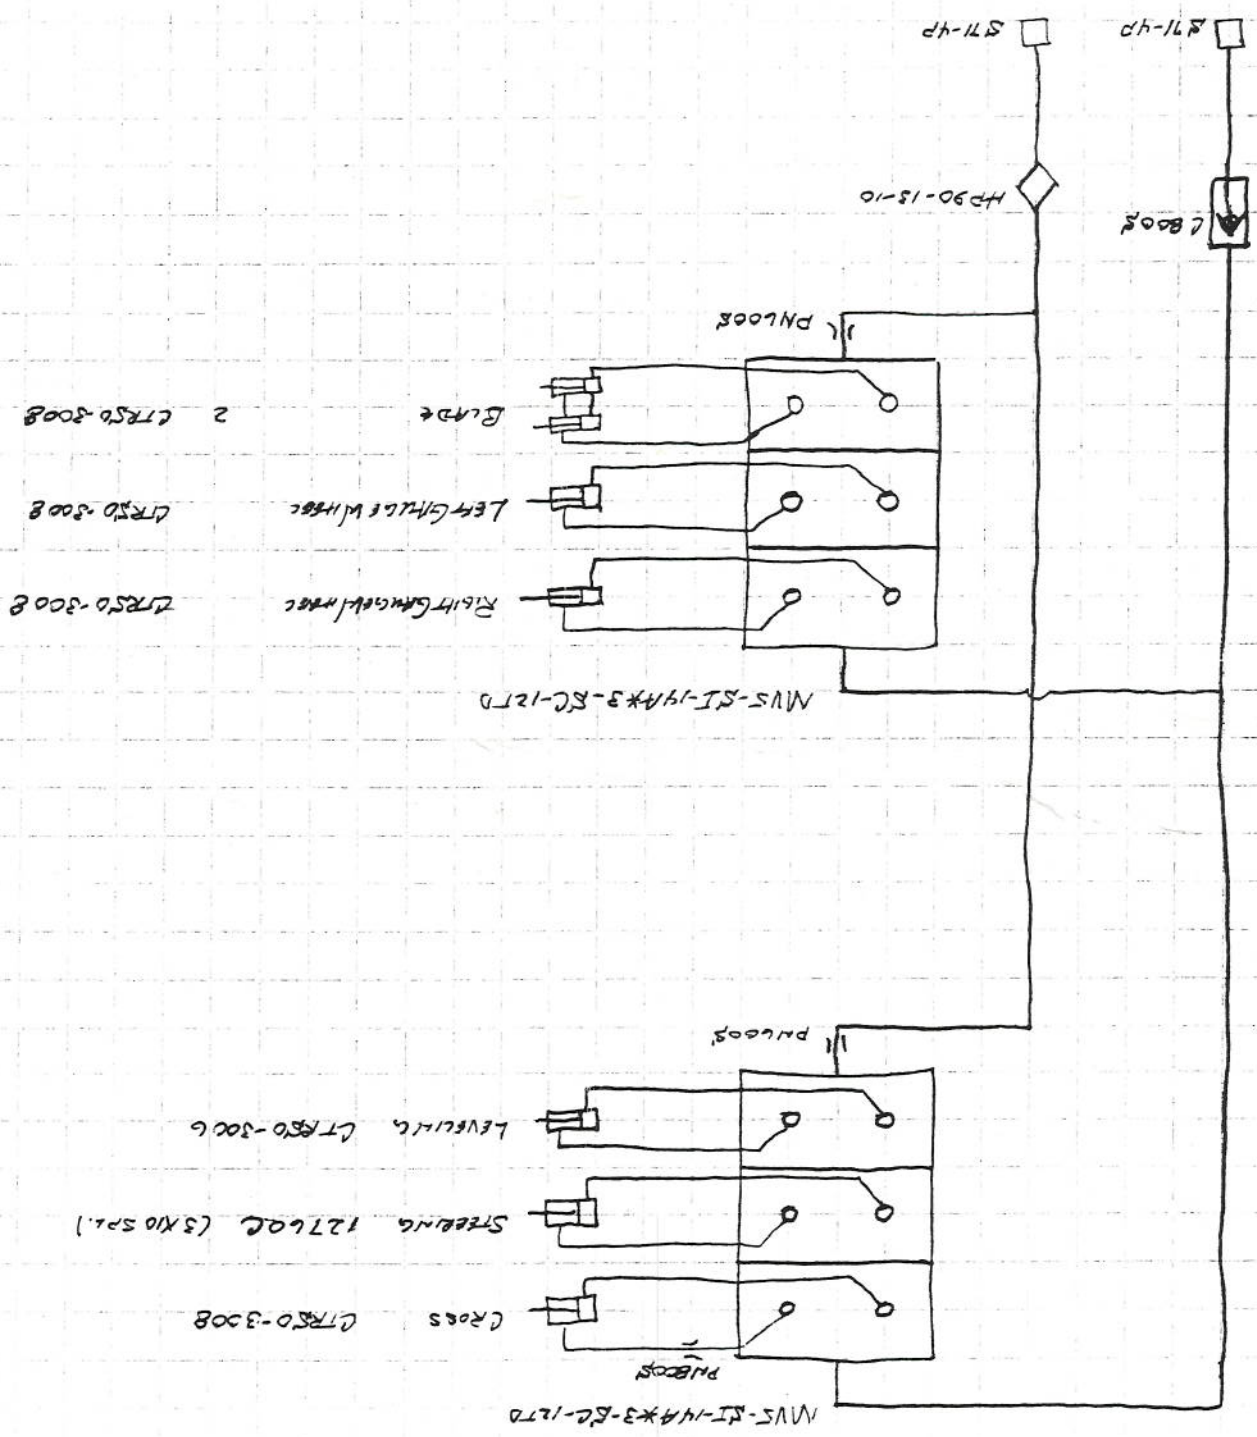 MVS-SI-14A*3-SC-12TD
PN800S
CROSS CTR50-3008
STEERING 12760C (3X10 SPL.)
LEVELING CTR50-3006
PN600S
MVS-SI-14A*3-SC-12TD
RIGHT GAUGEWHEEL CTR50-3008
LEFT GAUGE WHEEL CTR50-3008
BLADE 2 CTR50-3008
PN600S
C800S HP90-13-10
S71-4P S71-4P